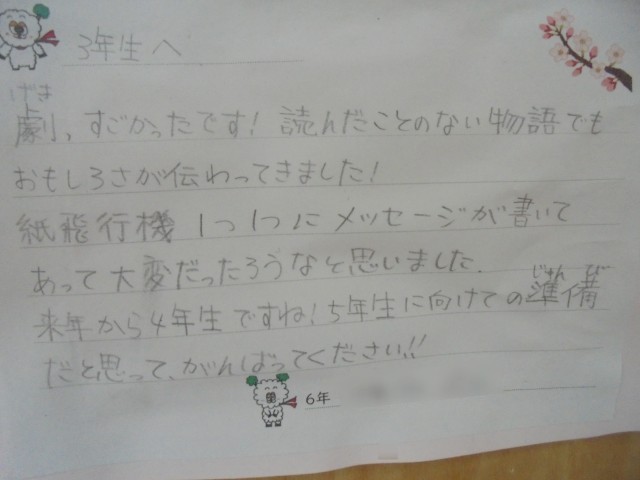 3年生へ
げき
劇、すごかったです！読んだことのない物語でも
おもしろさが伝わってきました！
紙飛行機1つ1つにメッセージが書いて
あって大変だったろうなと思いました。
じゅんび
来年から4年生ですね！5年生に向けての準備
だと思って、がんばってください!!
6年